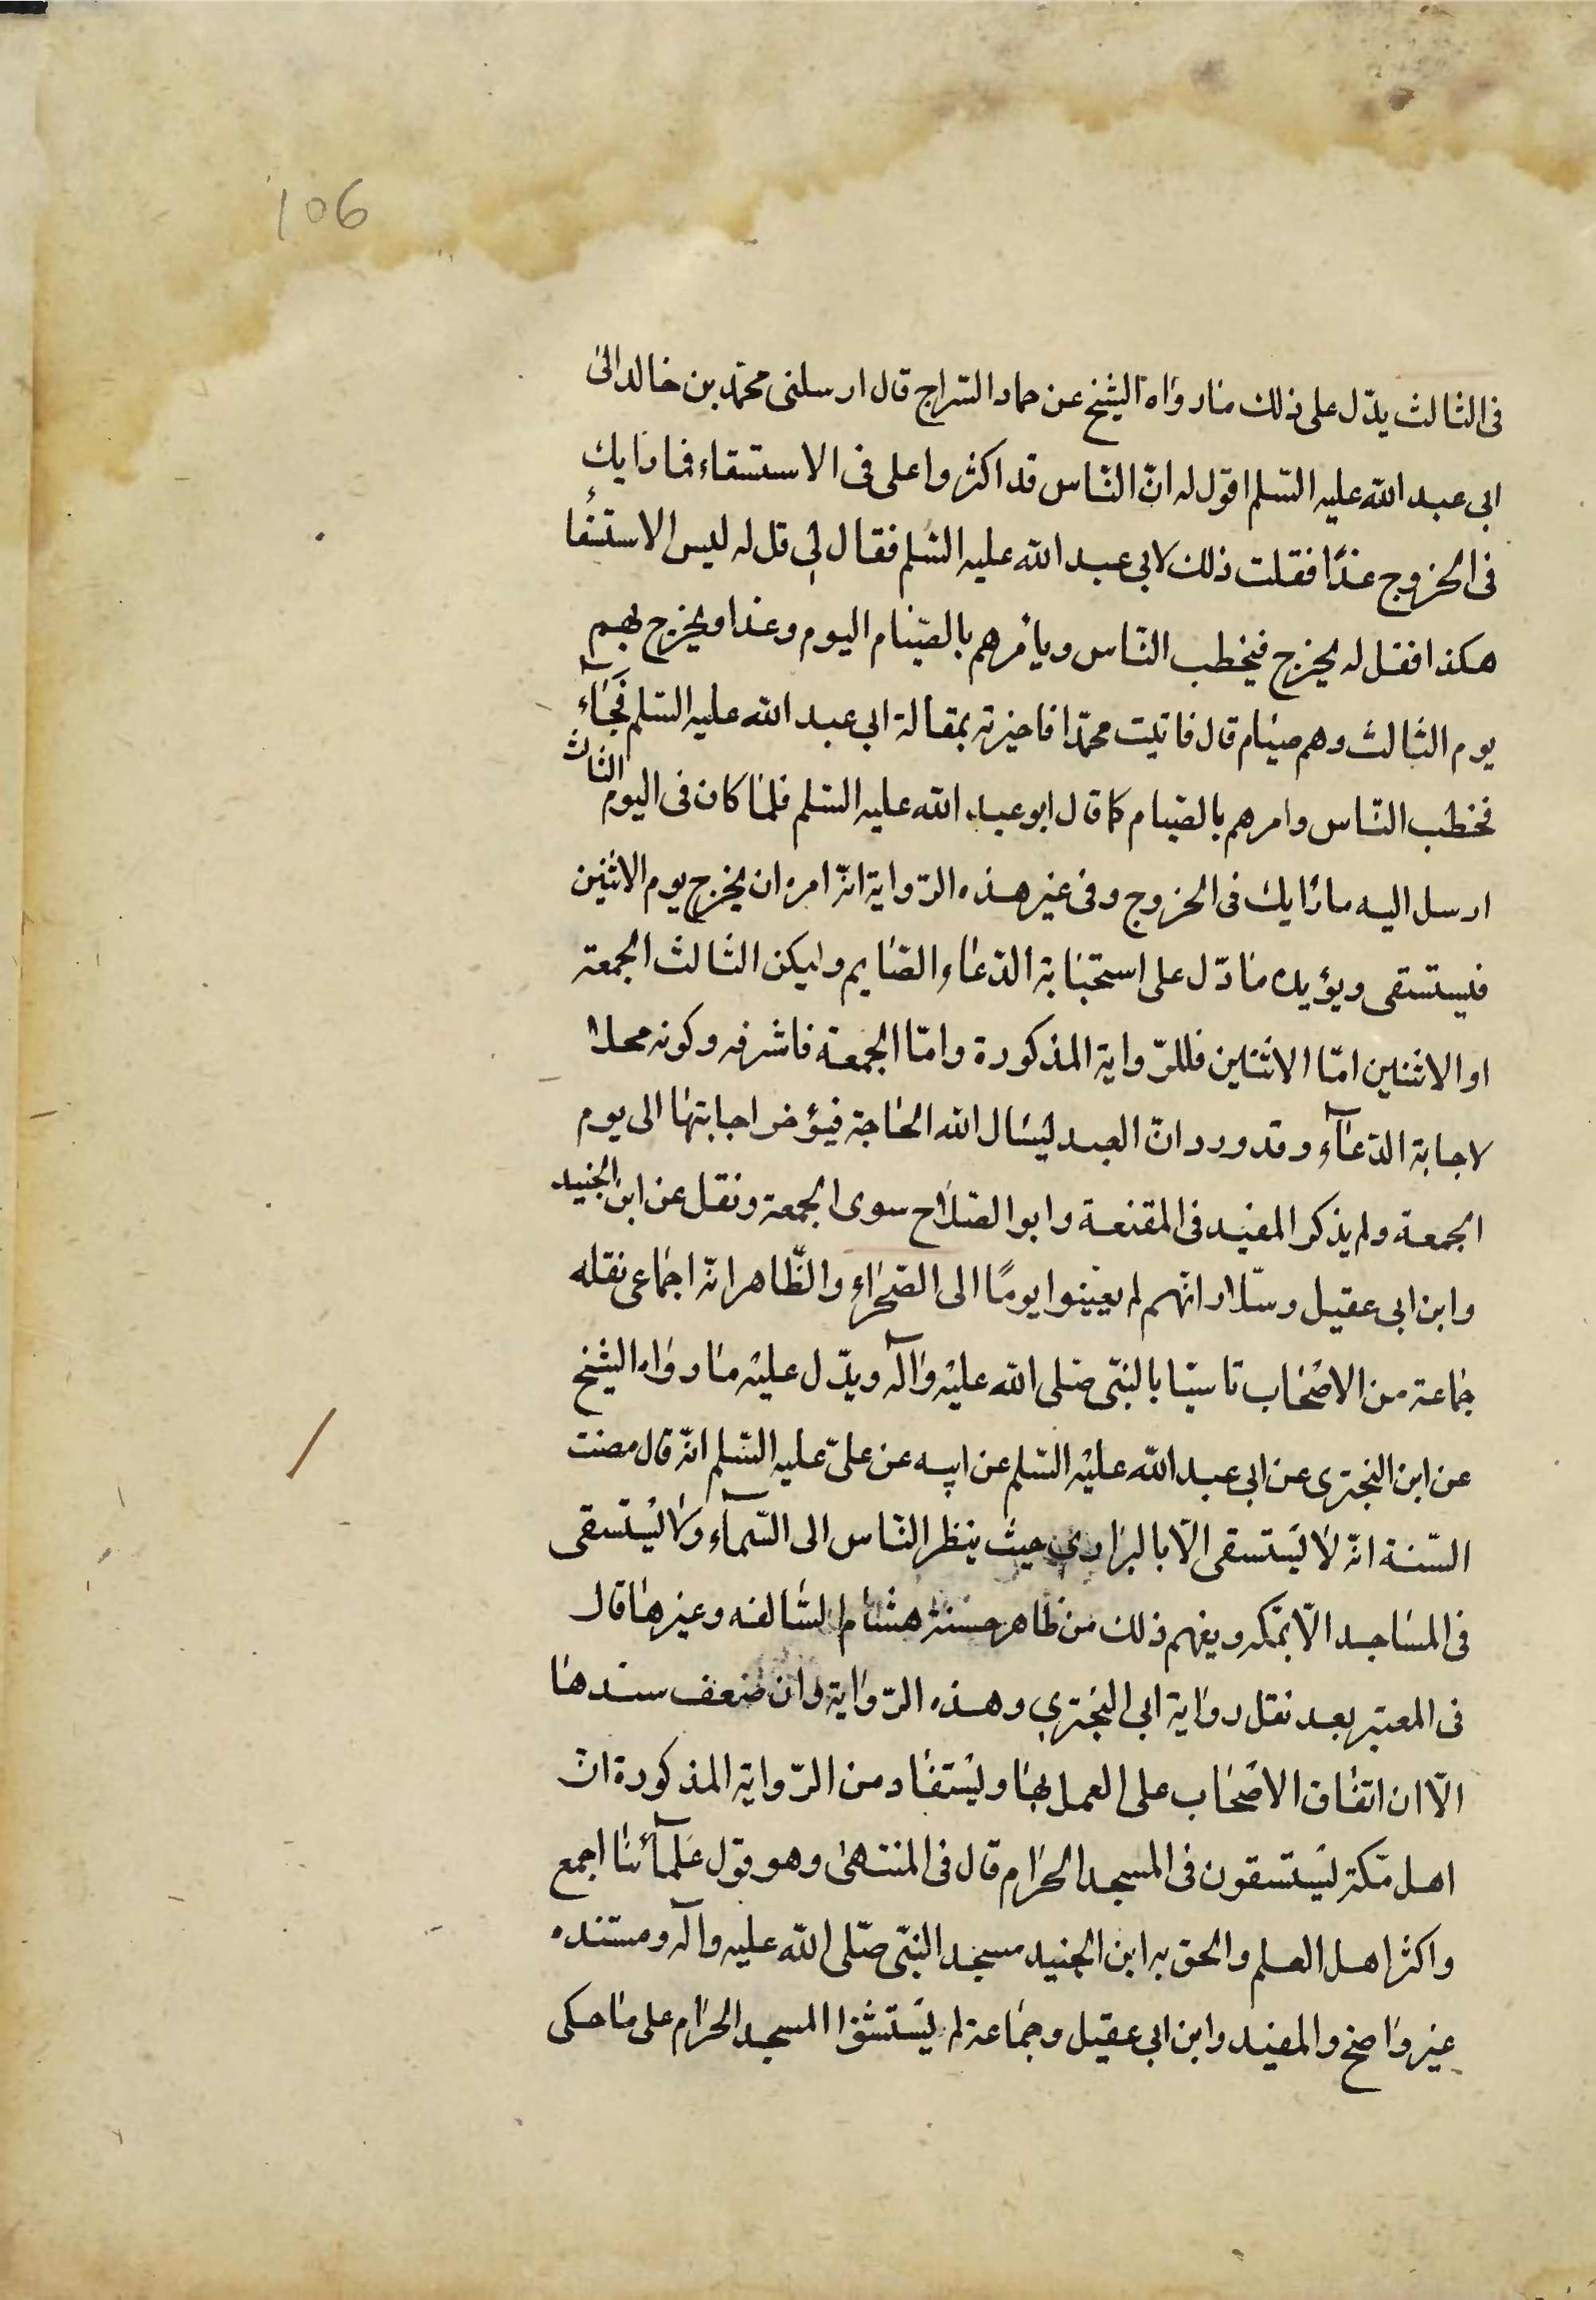 106
فى الثالث يدّل على ذلك ما رواه الشيخ عن حماد السّراج قال ارسلنى محمّد بن خالد الى
ابى عبد الله عليه السّلم اقول له انّ النّاس قد اكثروا على فى الاستسقاء فما رايك
فى الخروج غدًا فقلت ذلك لابى عبد الله عليه السّلم فقال لى قل له ليس الاستسقا
هكذا فقل له يخرج فيخطب النّاس ويأمرهم بالصّيام اليوم وغدا ويخرج بهم
يوم الثالث وهم صيام قال فاتيت محمّدا فاخبرته بمقالة ابى عبد الله عليه السّلم فجآء
فخطب النّاس وامرهم بالصّيام كما قال ابو عبد الله عليه السّلم فلمّا كان فى اليوم الثالث
ارسل اليه ما رايك فى الخروج وفى غير هذه الرّواية انّه امره ان يخرج يوم الاثنين
فيستسقى ويؤيده ما دّل على استجابة الدّعاء الصّايم وليكن الثالث الجمعة
او الاثنين امّا الاثنين فللرّواية المذكورة وامّا الجمعة فاشرفه وكونه محلا
لاجابة الدّعآء وقد ورد انّ العبد ليسال الله الحاجة فيؤخر اجابتها الى يوم
الجمعة ولم يذكر المفيد فى المقنعة وابو الصّلاح سوى الجمعة ونقل عن ابن الجنيد
وابن ابى عقيل وسلّار انّهم لم يعيّنوا يومًا الى الصّحراء والظّاهر انّه اجماعى نقله
جماعة من الاصحاب تاسيّا بالنبّى صّلى الله عليه وآله ويدّل عليه ما رواه الشيخ
عن ابن البخترى عن ابى عبد الله عليه السّلم عن ابيه عن علىّ عليه السّلم انّه قال مضت
السّنة انّه لا يستسقى الّا بالبرارى حيث ينظر النّاس الى السّمآء ولا يستسقى
فى المساجد الّا بمكه ويفهم ذلك من ظاهر حسنة هشام السّالفه وغيرها قال
فى المعتبر بعد نقل رواية ابى البخترى وهذه الرّواية وان ضعف سندها
الّا ان اتفاق الاصحاب على العمل بها ويستفاد من الرّواية المذكورة انّ
اهل مكّة يستسقون فى المسجد الحرام قال فى المنتهى وهو قول علمآئنا اجمع
واكثر اهل العلم والحق به ابن الجنيد مسجد النبّى صّلى الله عليه وآله ومستنده
غير واضح والمفيد وابن ابى عقيل وجماعة لم يستثنوا المسجد الحرام على ما حكى